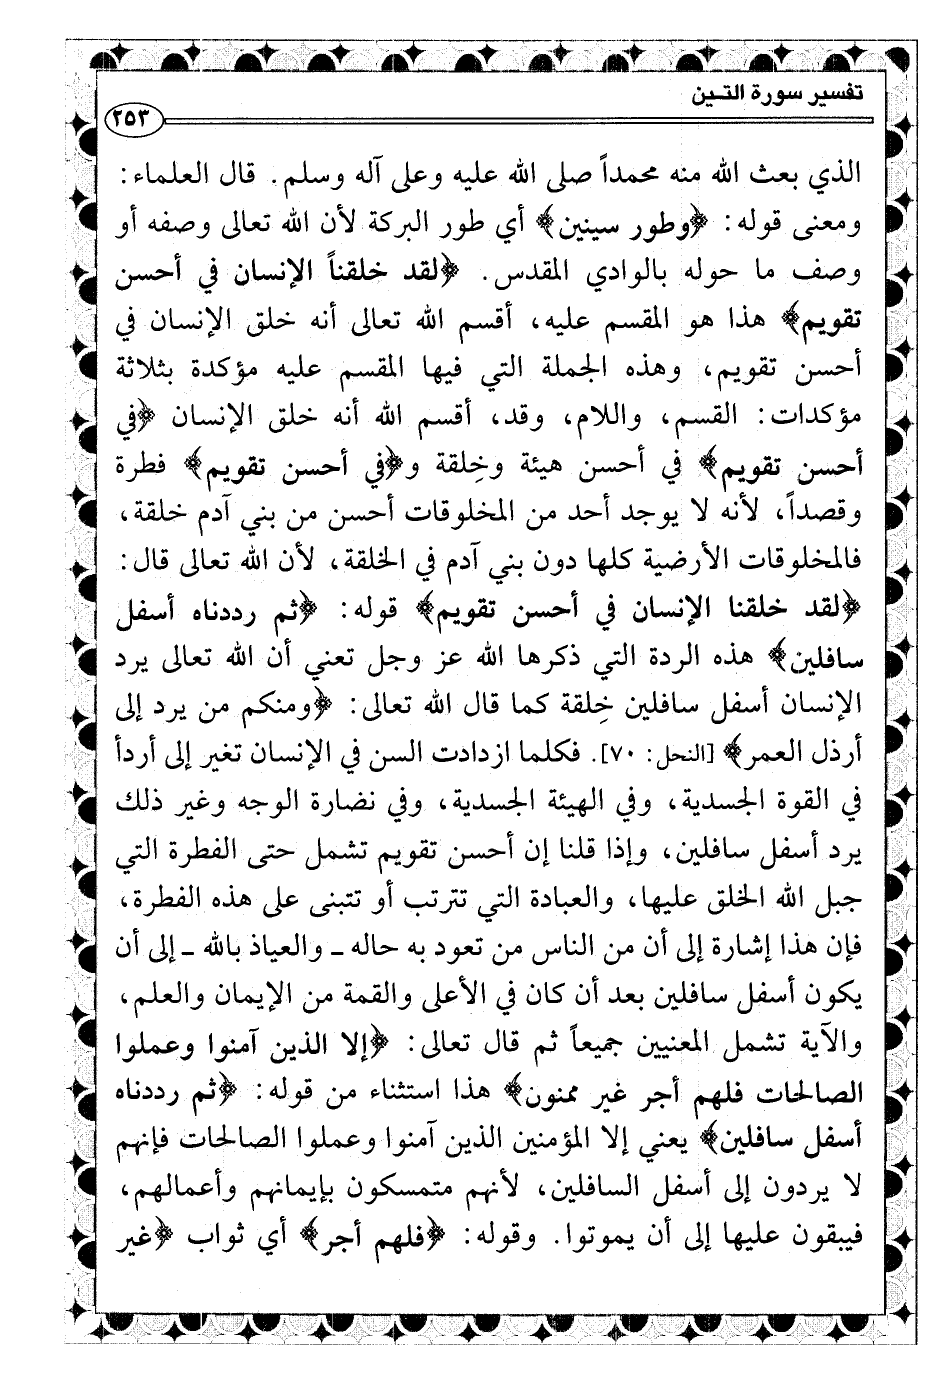 تفسير سورة التـين
٢٥٣
الذي بعث الله منه محمداً صلى الله عليه وعلى آله وسلم. قال العلماء:
ومعنى قوله: ﴿وطور سينين﴾ أي طور البركة لأن الله تعالى وصفه أو
وصف ما حوله بالوادي المقدس. ﴿لقد خلقناً الإنسان في أحسن
تقويم﴾ هذا هو المقسم عليه، أقسم الله تعالى أنه خلق الإنسان في
أحسن تقويم، وهذه الجملة التي فيها المقسم عليه مؤكدة بثلاثة
مؤكدات: القسم، واللام، وقد، أقسم الله أنه خلق الإنسان ﴿في
أحسن تقويم﴾ في أحسن هيئة وخِلقة و﴿في أحسن تقويم﴾ فطرة
وقصداً، لأنه لا يوجد أحد من المخلوقات أحسن من بني آدم خلقة،
فالمخلوقات الأرضية كلها دون بني آدم في الخلقة، لأن الله تعالى قال:
﴿لقد خلقنا الإنسان في أحسن تقويم﴾ قوله: ﴿ثم رددناه أسفل
سافلين﴾ هذه الردة التي ذكرها الله عز وجل تعني أن الله تعالى يرد
الإنسان أسفل سافلين خِلقة كما قال الله تعالى: ﴿ومنكم من يرد إلى
أرذل العمر﴾ [النحل: ٧٠]. فكلما ازدادت السن في الإنسان تغير إلى أردأ
في القوة الجسدية، وفي الهيئة الجسدية، وفي نضارة الوجه وغير ذلك
يرد أسفل سافلين، وإذا قلنا إن أحسن تقويم تشمل حتى الفطرة التي
جبل الله الخلق عليها، والعبادة التي تترتب أو تتبنى على هذه الفطرة،
فإن هذا إشارة إلى أن من الناس من تعود به حاله ـ والعياذ بالله ـ إلى أن
يكون أسفل سافلين بعد أن كان في الأعلى والقمة من الإيمان والعلم،
والآية تشمل المعنيين جميعاً ثم قال تعالى: ﴿إلا الذين آمنوا وعملوا
الصالحات فلهم أجر غير ممنون﴾ هذا استثناء من قوله: ﴿ثم رددناه
أسفل سافلين﴾ يعني إلا المؤمنين الذين آمنوا وعملوا الصالحات فإنهم
لا يردون إلى أسفل السافلين، لأنهم متمسكون بإيمانهم وأعمالهم،
فيبقون عليها إلى أن يموتوا. وقوله: ﴿فلهم أجر﴾ أي ثواب ﴿غير